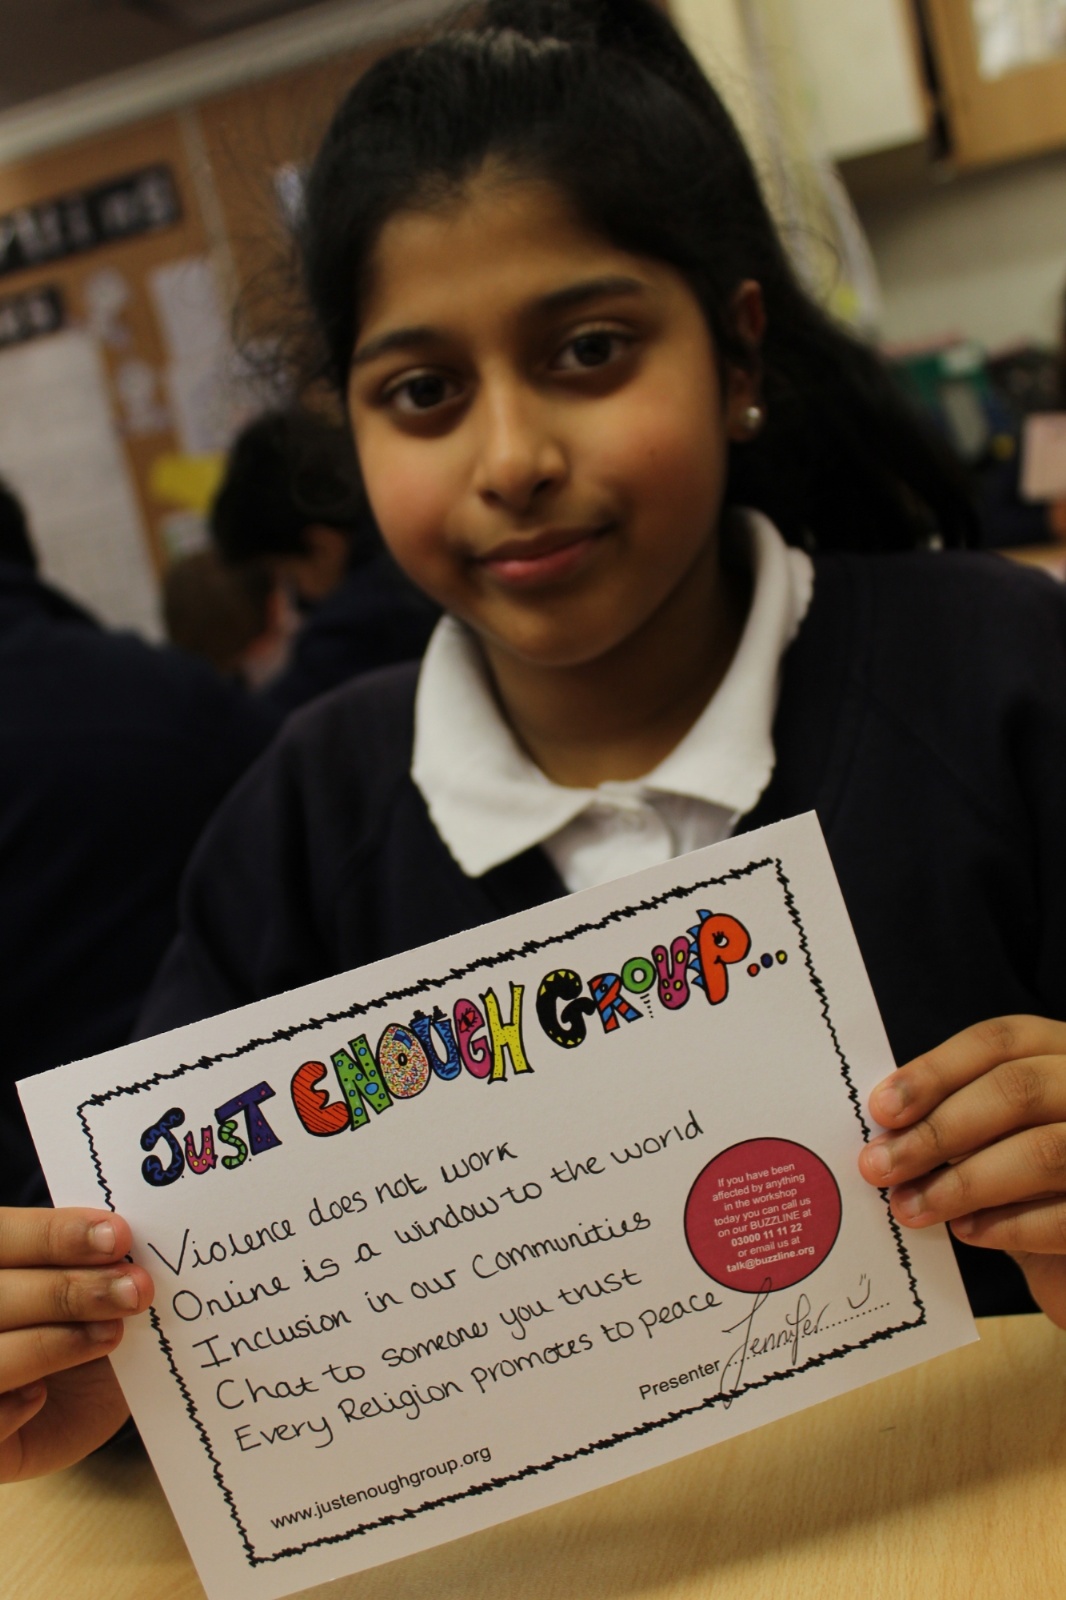 JUST ENOUGH GROUP...
Violence does not work
Online is a window to the world
Inclusion in our Communities
Chat to someone you trust
Every Religion promotes to peace
If you have been
affected by anything
in the workshop
today you can call us
on our BUZZLINE at
03000 11 11 22
or email us at
talk@buzzline.org
Presenter ....Jennifer............
www.justenoughgroup.org